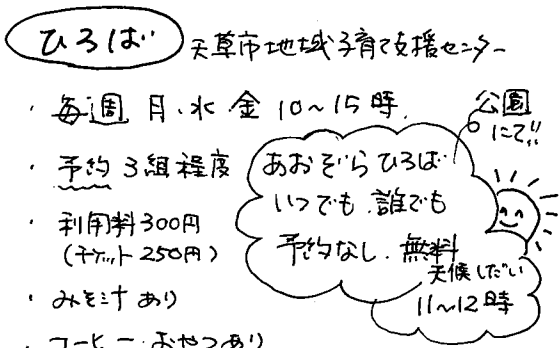 ひろば 天草市地域子育て支援センター
・毎週 月.水.金 10~15時.
・予約 3組程度
・利用料300円
(チケット 250円)
・みそ汁 あり
・コーヒー・おやつあり
公園
にて!!
あおぞらひろば
いつでも.誰でも
予約なし.無料
天候しだい
11~12時